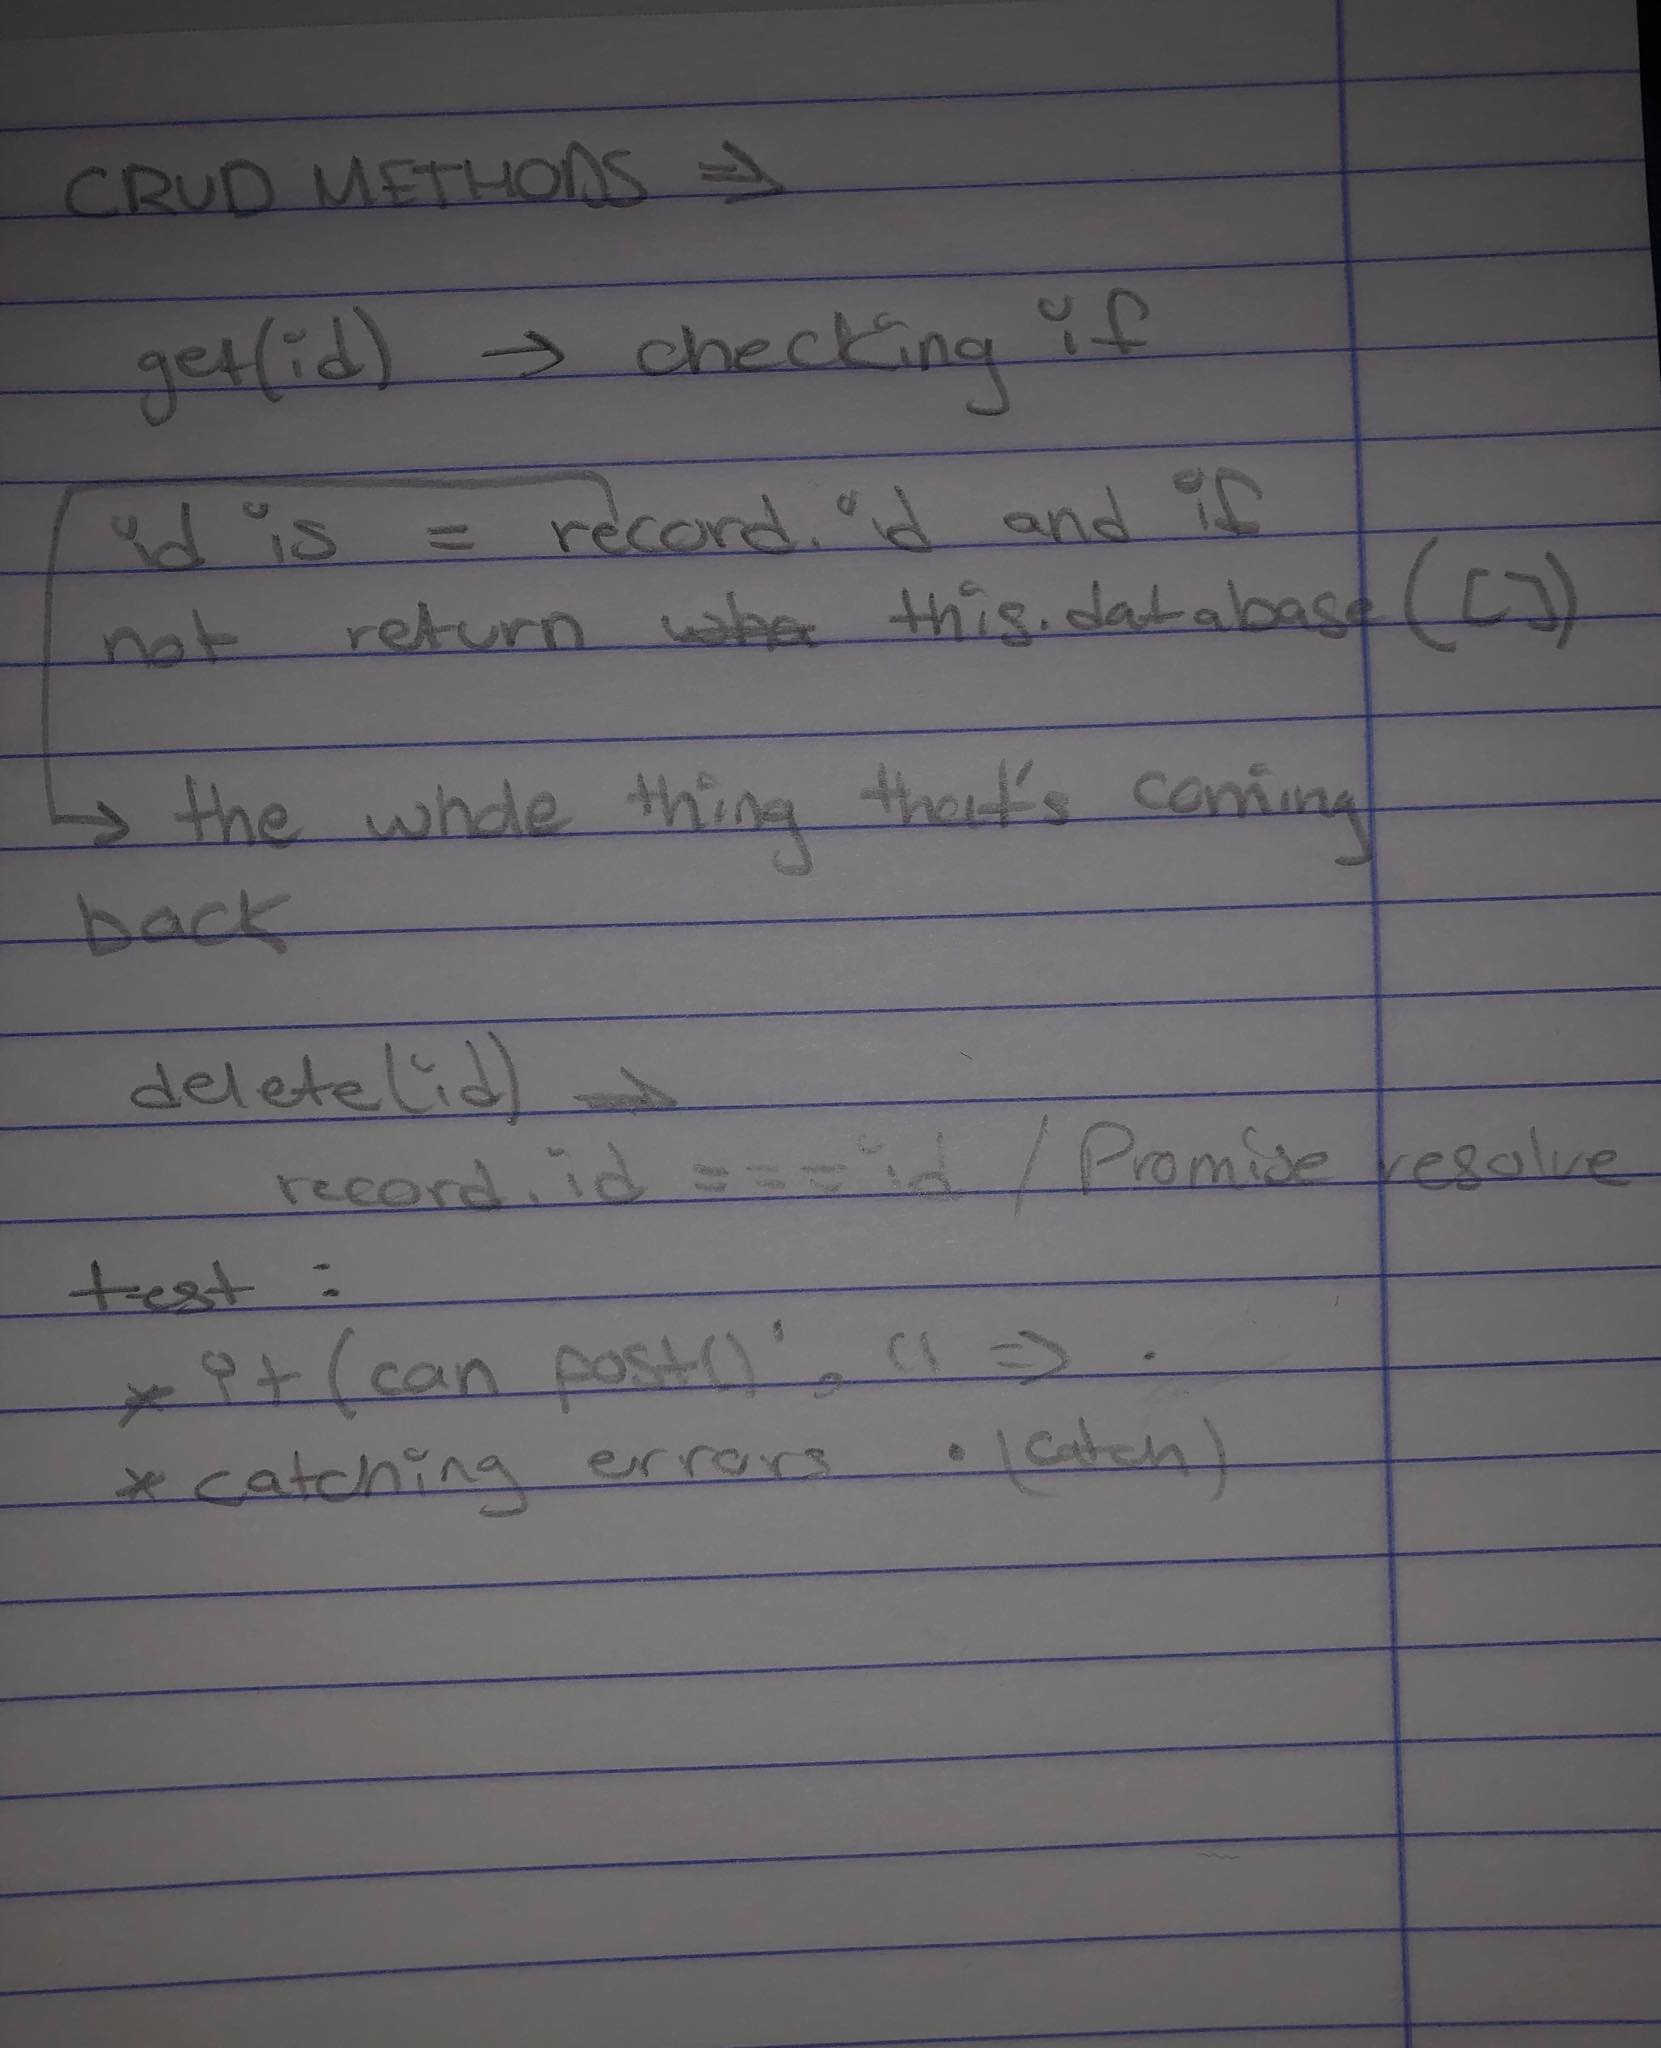 CRUD METHODS ⇒
get(id) → checking if
id is = record.id and if
not return this.database([])
↳ the whole thing that's coming
back
delete(id) →
record.id === id / Promise resolve
test :
* it (can post()', () =>
* catching errors .(catch)